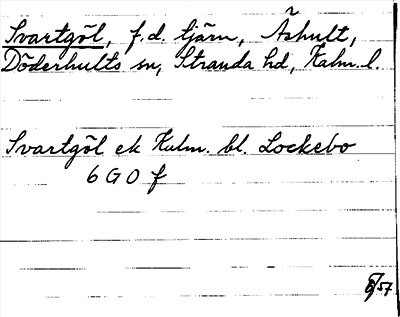 Svartgöl, f.d. tjärn, Åshult,
Döderhults sn, Stranda hd, Kalm. l.
Svartgöl ek Kalm. bl. Lockebo
6 G 0 f